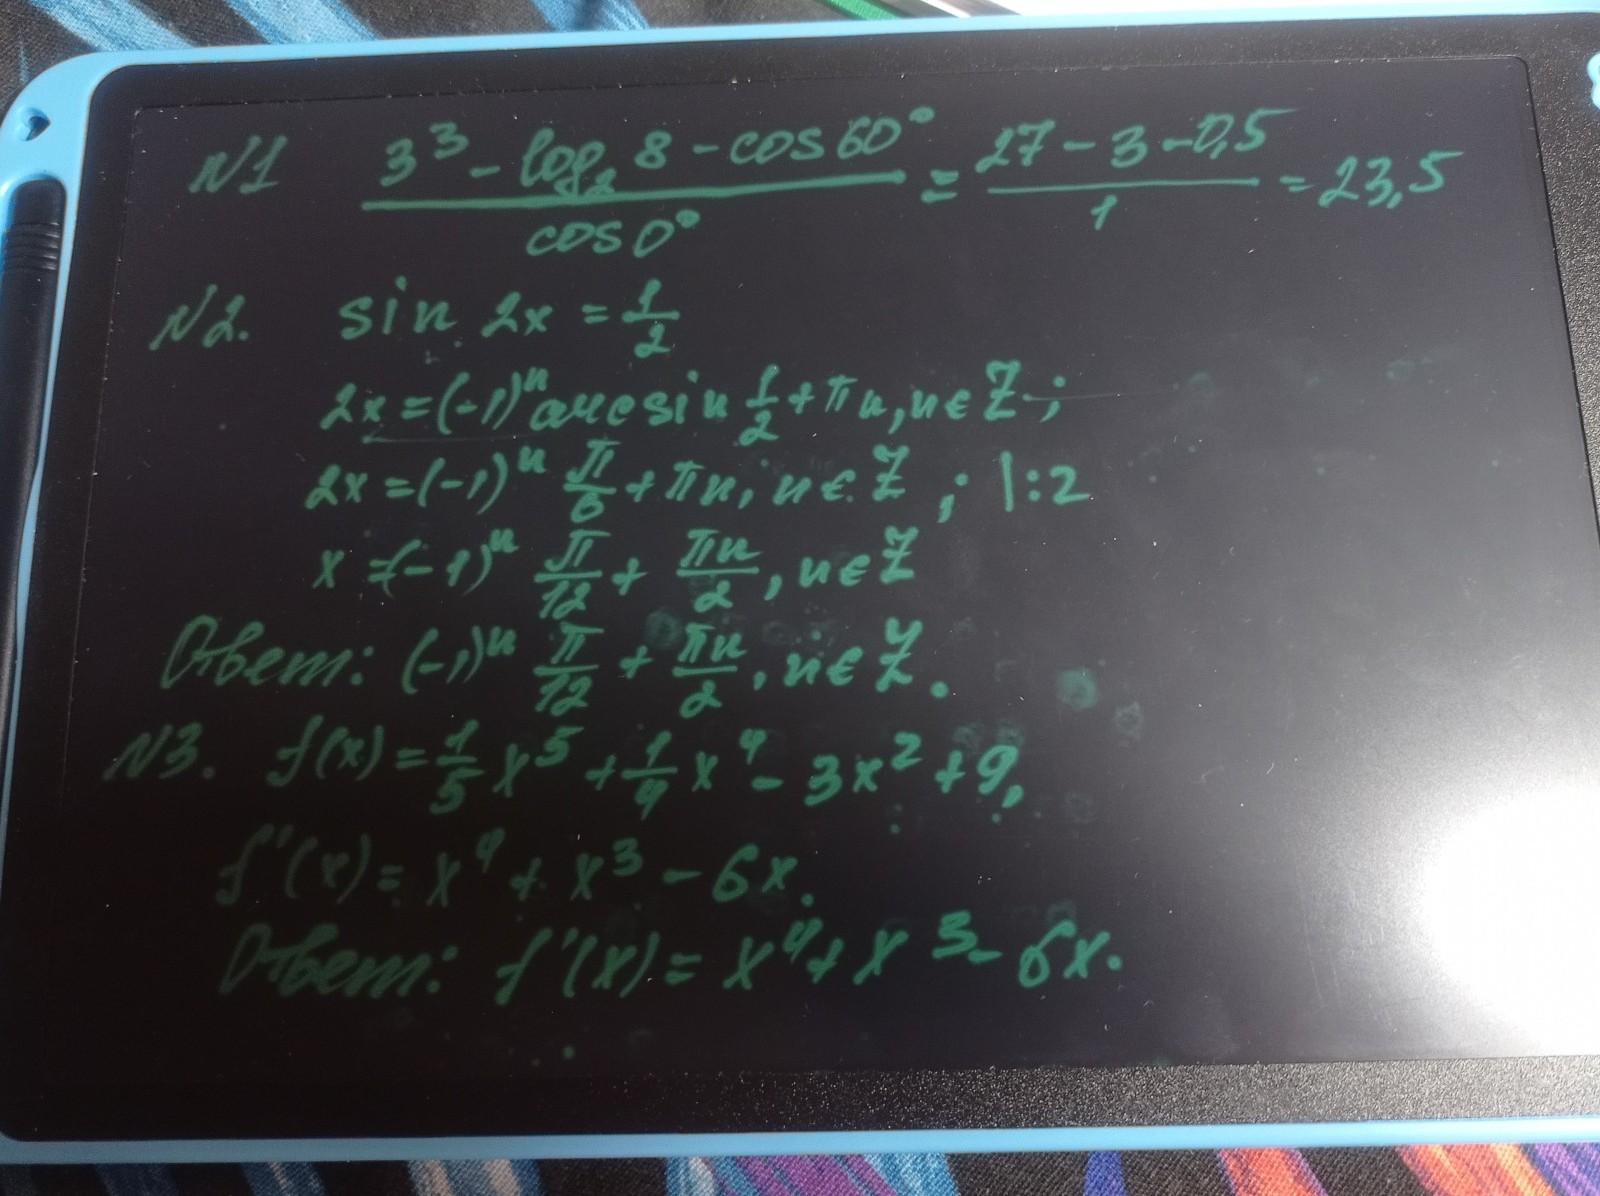 N1 (3³ - log₂ 8 - cos 60°)/(cos 0°) = (27 - 3 - 0,5)/1 = 23,5
N2. sin 2x = 1/2
2x = (-1)ⁿ arcsin 1/2 + πn, n ∈ Z;
2x = (-1)ⁿ π/6 + πn, n ∈ Z; |:2
x = (-1)ⁿ π/12 + πn/2, n ∈ Z
Ответ: (-1)ⁿ π/12 + πn/2, n ∈ Z.
N3. f(x) = 1/5 x⁵ + 1/4 x⁴ - 3x² + 9,
f'(x) = x⁴ + x³ - 6x.
Ответ: f'(x) = x⁴ + x³ - 6x.